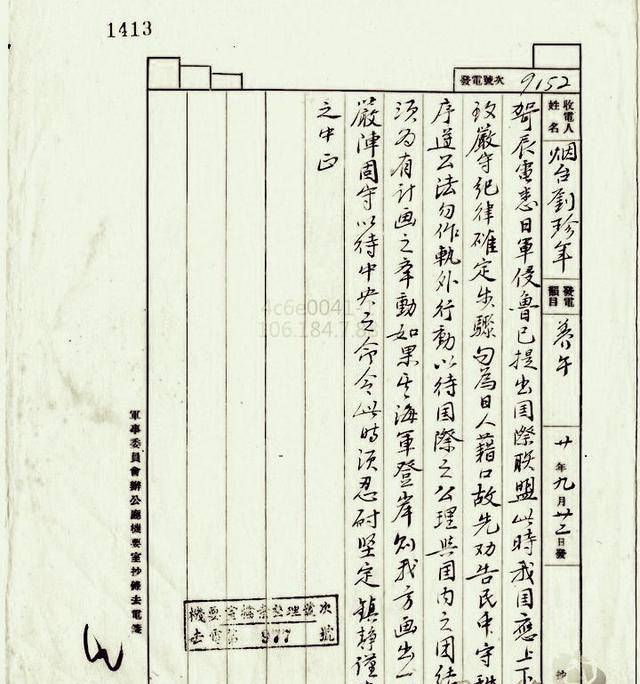 1413
發電號次 9152
收電人姓名 烟台劉珍年
發電韻目 養午
廿年九月廿二日發
哿辰電悉日軍侵魯已提出国際联盟此時我国應上下
致嚴守紀律確定步驟勿為日人藉口故先劝告民中守
序遵公法勿作軌外行動以待国際之公理與国内之团结
须为有計画之举動如果其海軍登岸则我方画出一
嚴陣固守以待中央之命令此時须忍耐坚定镇静謹
之中正
軍事委員會辦公廳機要室抄錄去電箋
機要室檔案整理號次
去電 977 號
4c6e0041-
106.184.7.8